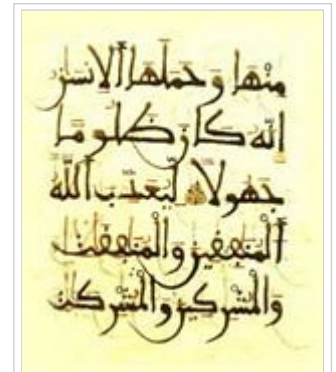 مِنْهَا وَحَمَلَهَا ٱلْإِنسَٰنُ
إِنَّهُۥ كَانَ ظَلُومًا
جَهُولًا لِّيُعَذِّبَ ٱللَّهُ
ٱلْمُنَٰفِقِينَ وَٱلْمُنَٰفِقَٰتِ
وَٱلْمُشْرِكِينَ وَٱلْمُشْرِكَٰتِ